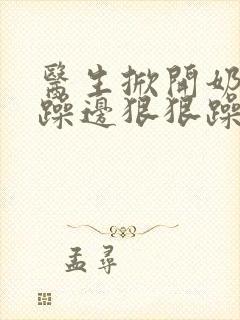 醫生掀開奶
躁邊狠狠躁
孟尋